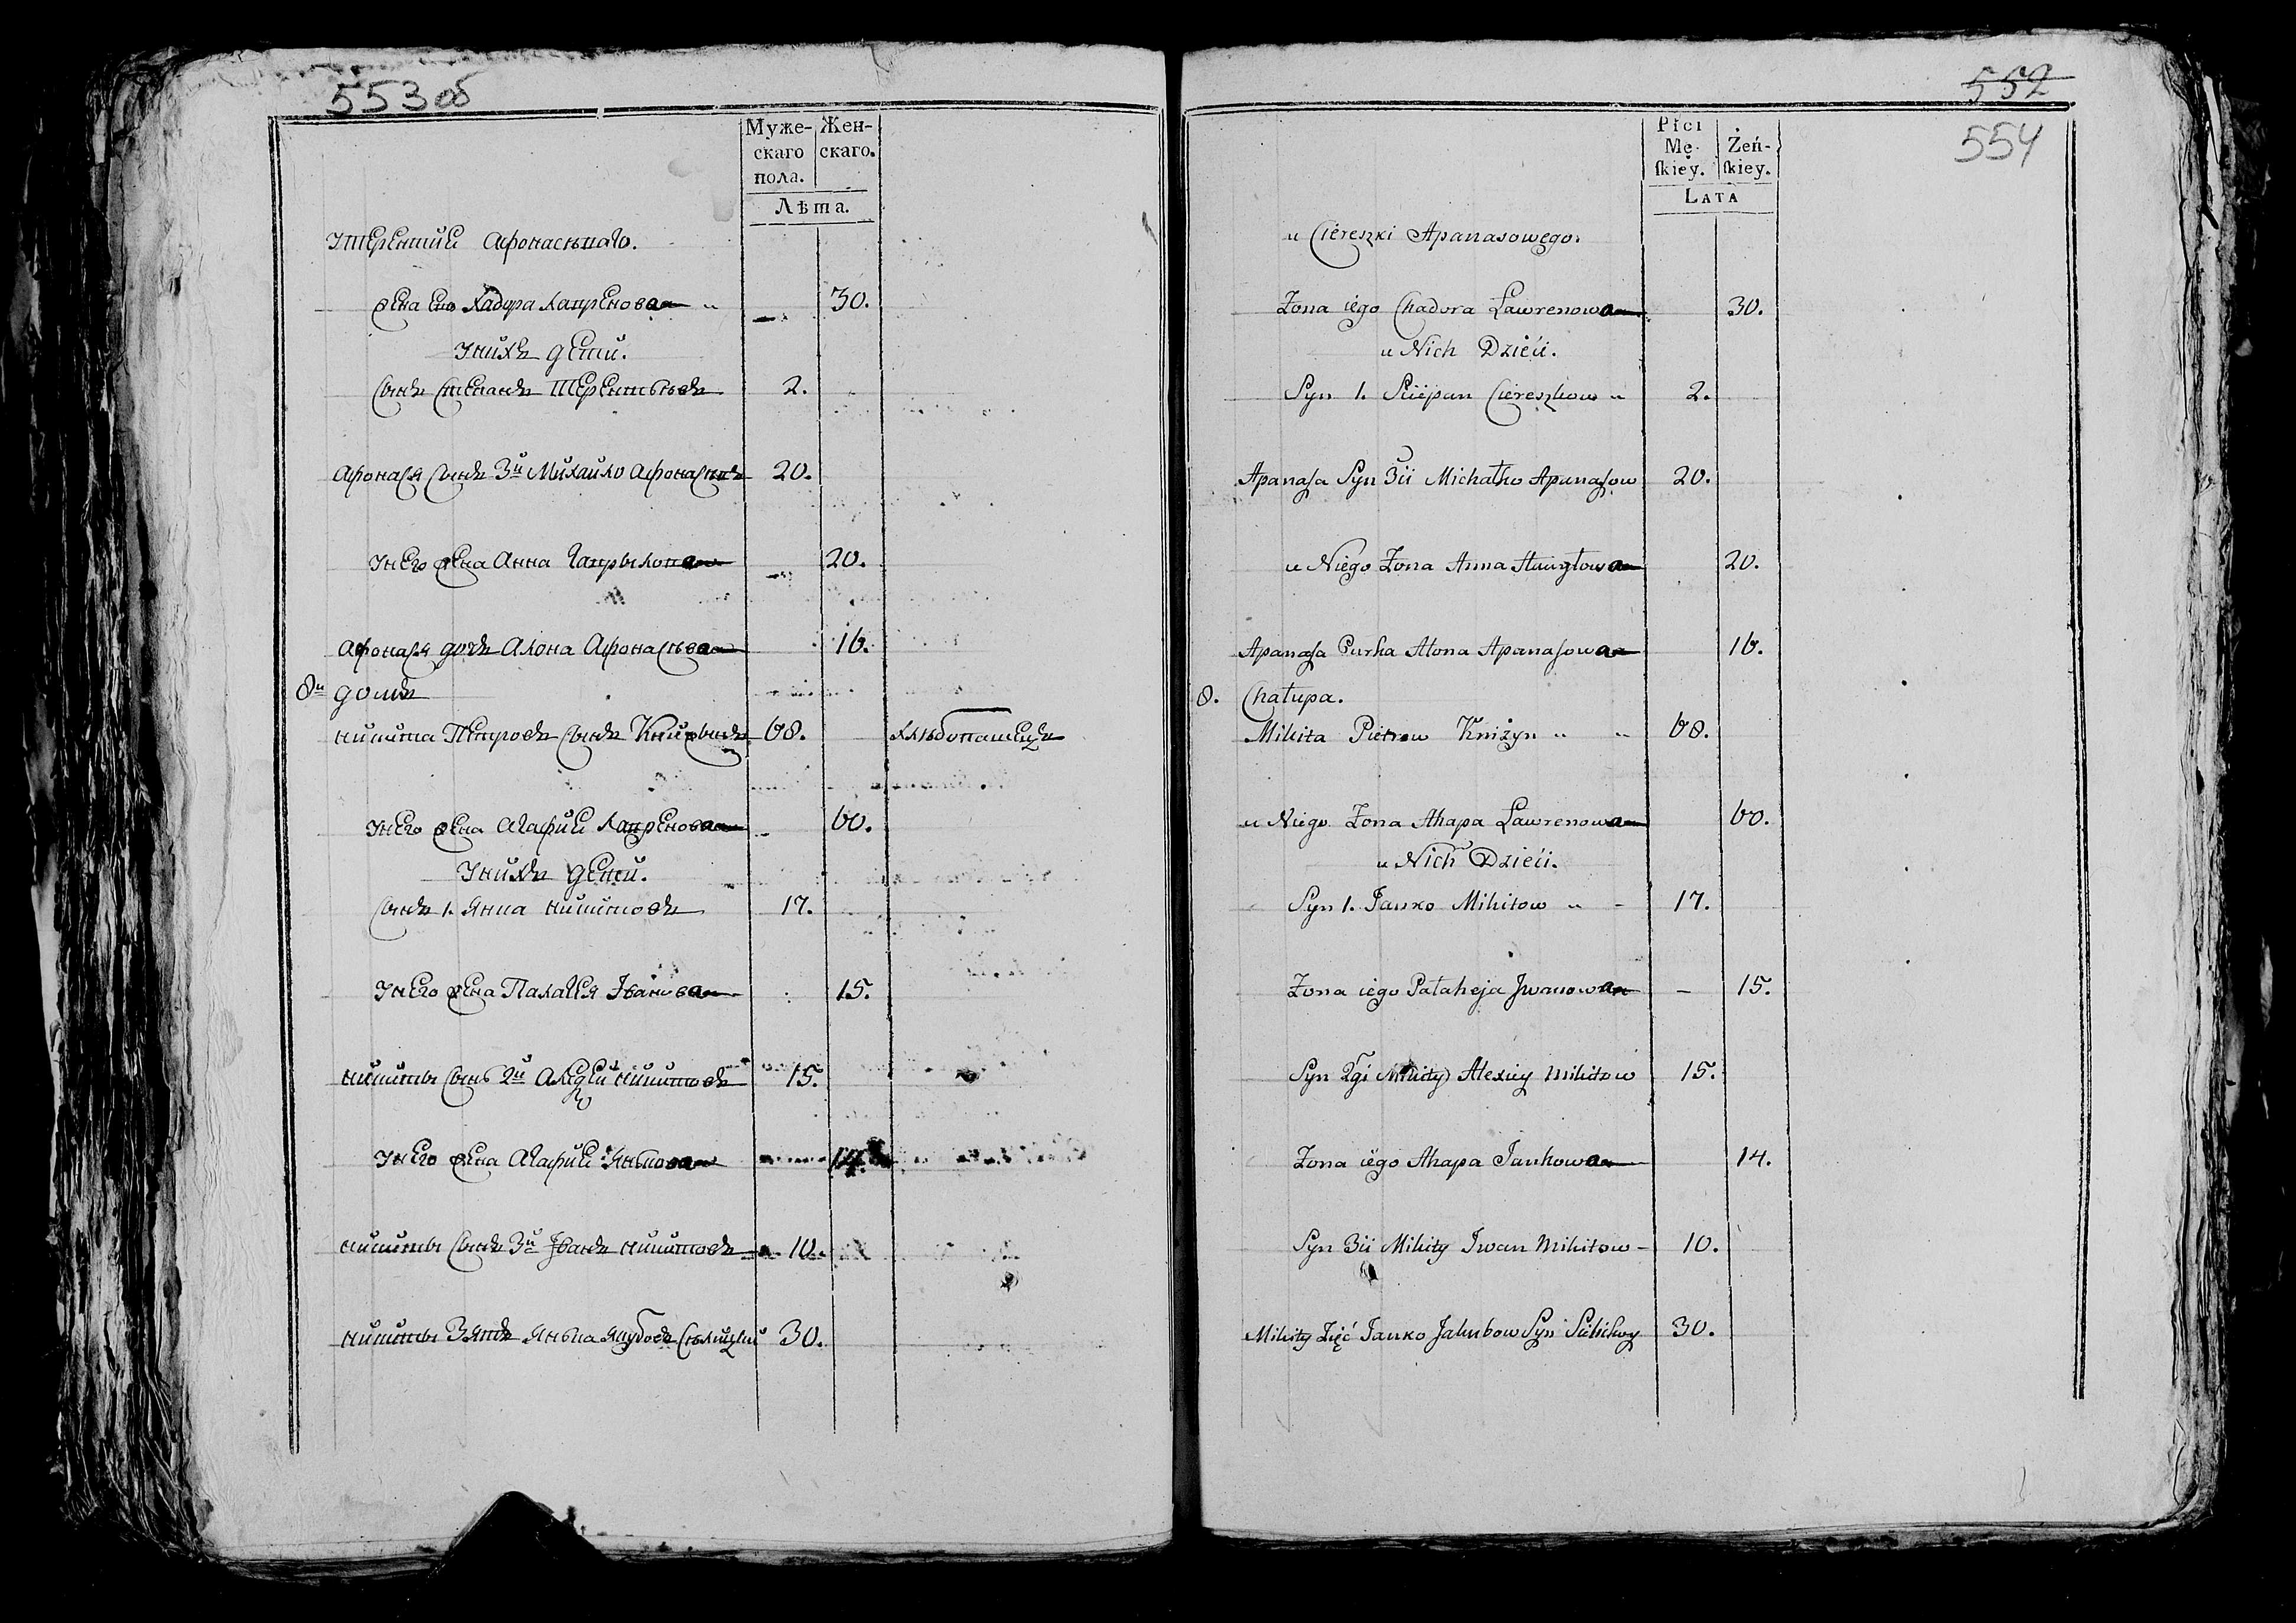 553 об
Муже- Жен-
скаго скаго.
пола.
Лѣта.
У Терентий Афонасьваго.
Жена его Хадора Лавренова 30.
У нихъ дети.
Сынъ Степанъ Терентьевъ 2.
Афонася Сынъ 3й Михайло Афонасьевъ 20.
У него жена Анна Гаврылова 20.
Афонася дочь Алона Афонасьева 16.
8й домъ
Никита Петровъ Сынъ Книжынъ 68. хлѣбопашецъ
У него жена Агафии Лавренова 60.
У нихъ дети.
Сынъ 1. Янка Никитовъ 17.
У него жена Палагея Іванова 15.
Никиты Сынъ 2й Алексей Никитовъ 15.
У него жена Агафии Янкова 14.
Никиты Сынъ 3й Іванъ Никитовъ 10.
Никиты Зять Янька Якубовъ 30.
552
554
Płci
Mę- Żeń-
ſkiey. ſkiey.
LATA
u Ciereszki Apanasowego.
Żona iego Chadora Ławrenowa 30.
u Nich Dzieci.
Syn 1. Sciepan Ciereszkow 2.
Apanaſa Syn 3ci Michałko Apanaſow 20.
u Niego Żona Anna Hawryłowa 20.
Apanaſa Curka Alona Apanaſowa 16.
8. Chałupa.
Mikita Pietrow Kniżyn 68.
u Niego Żona Ahapa Ławrenowa 60.
u Nich Dzieci.
Syn 1. Janko Mikitow 17.
Żona iego Pałaheja Jwanowa 15.
Syn 2gi Mikity Alexiey Mikitow 15.
Żona iego Ahapa Jankowa 14.
Syn 3ci Mikity Iwan Mikitow 10.
Mikity Zięć Janko Jakubow Syn 30.